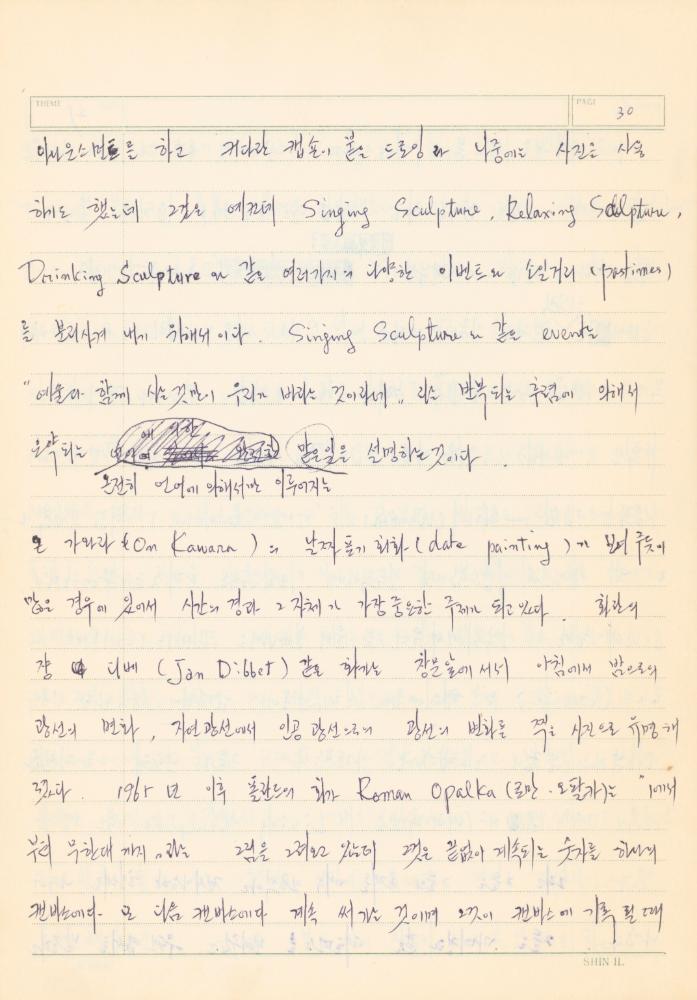 THEME PAGE
30
아나운스먼트를 하고 커다란 캡션이 붙은 드로잉과 나중에는 사진을 사용
하기도 했는데 그것은 예컨데 Singing Sculpture, Relaxing Sculpture,
Drinking Sculpture와 같은 여러가지의 다양한 이벤트와 소일거리 (pastimes)
를 분리시켜 내기 위해서이다. Singing Sculpture와 같은 event는
"예술과 함께 사는 것만이 우리가 바라는 것이라네" 라는 반복되는 후렴에 의해서
요약되는 많은 일을 설명하는 것이다.
온전히 언어에 의해서만 이루어지는
온 가와라 (On Kawara)의 날짜 표기 회화 (date painting)가 보여주듯이
많은 경우에 있어서 시간의 경과 그 자체가 가장 중요한 주제가 되고 있다. 화란의
쟝 디베 (Jan Dibbet) 같은 화가는 창문앞에 서서 아침에서 밤으로의
광선의 변화, 자연광선에서 인공광선으로의 광선의 변화를 찍은 사진으로 유명해
졌다. 1965년 이후 폴란드의 화가 Roman Opalka (로만·오팔카)는 "1에서
부터 무한대까지"라는 그림을 그려오고 있는데 그것은 끝없이 계속되는 숫자를 하나의
캔바스에다 또 다음 캔바스에다 계속 써가는 것이며 그것이 캔바스에 기록될 때
SHIN IL